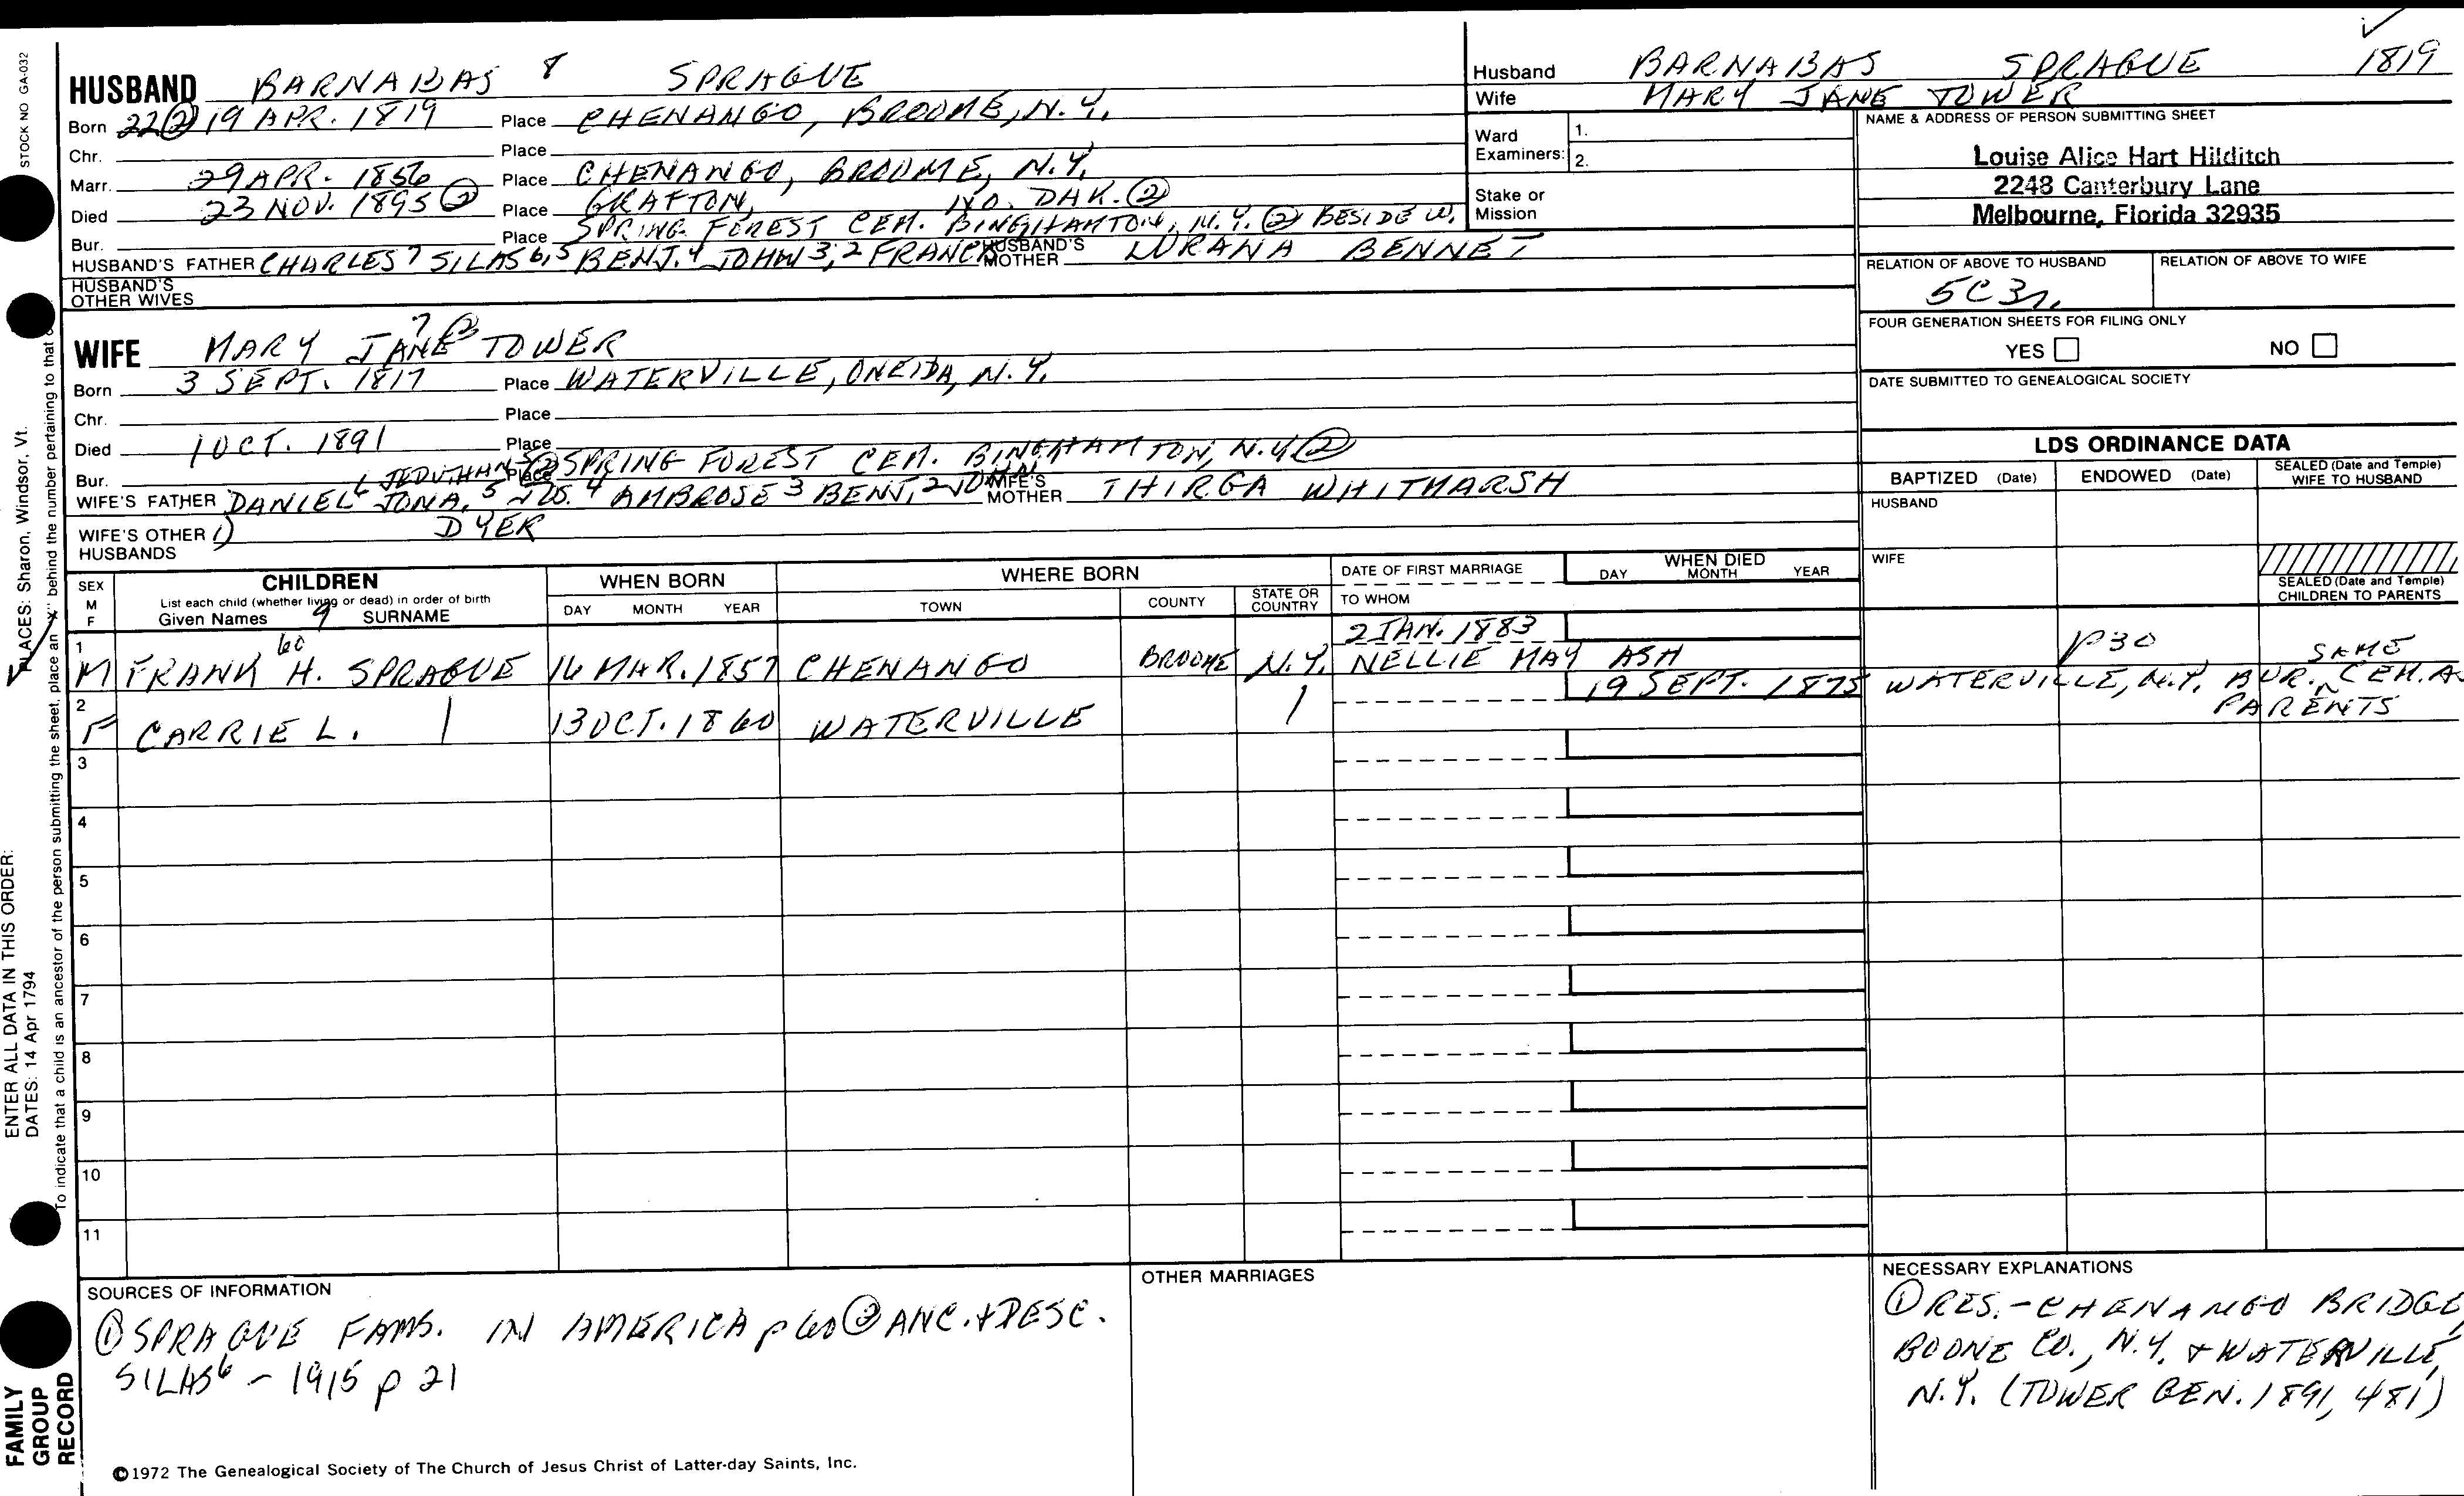 HUSBAND BARNABAS 8 SPRAGUE
Born 22② 19 APR. 1819 Place CHENANGO, BROOME, N.Y.
Chr. Place
Marr. 29 APR. 1856 Place CHENANGO, BROOME, N.Y.
Died 23 NOV. 1895 ② Place GRAFTON, NO. DAK. ②
Bur. Place SPRING FOREST CEM. BINGHAMTON, N.Y. ② BESIDE W.
HUSBAND'S FATHER CHARLES 7 SILAS 6,5 BENJ. 4 JOHN 3,2 FRANCIS HUSBAND'S MOTHER LURANA BENNET
HUSBAND'S OTHER WIVES
Husband BARNABAS SPRAGUE 1819
Wife MARY JANE TOWER
Ward Examiners: 1.
2.
Stake or Mission
NAME & ADDRESS OF PERSON SUBMITTING SHEET
Louise Alice Hart Hilditch
2248 Canterbury Lane
Melbourne, Florida 32935
RELATION OF ABOVE TO HUSBAND RELATION OF ABOVE TO WIFE
5C3r.
FOUR GENERATION SHEETS FOR FILING ONLY
YES NO
DATE SUBMITTED TO GENEALOGICAL SOCIETY
WIFE MARY JANE 7 ② TOWER
Born 3 SEPT. 1817 Place WATERVILLE, ONEIDA, N.Y.
Chr. Place
Died 1 OCT. 1891 Place
Bur. Place SPRING FOREST CEM. BINGHAMTON, N.Y. ②
WIFE'S FATHER DANIEL 6 JEDUTHAN JONA. 5 4 AMBROSE 3 BENJ. 2 JOHN WIFE'S MOTHER THIRGA WHITMARSH
WIFE'S OTHER HUSBANDS 1) DYER
LDS ORDINANCE DATA
BAPTIZED (Date) ENDOWED (Date) SEALED (Date and Temple) WIFE TO HUSBAND
HUSBAND
WIFE
SEALED (Date and Temple) CHILDREN TO PARENTS
SEX M F CHILDREN WHEN BORN WHERE BORN DATE OF FIRST MARRIAGE WHEN DIED
List each child (whether living or dead) in order of birth DAY MONTH YEAR TOWN COUNTY STATE OR COUNTRY TO WHOM DAY MONTH YEAR
Given Names 9 SURNAME
1 M FRANK 60 H. SPRAGUE 16 MAR. 1857 CHENANGO BROOME N.Y. 2 JAN. 1883 NELLIE MAY ASH P30 SAME
2 F CARRIE L. 13 OCT. 1860 WATERVILLE 19 SEPT. 1875 WATERVILLE, N.Y. BUR. CEM. AS PARENTS
3
4
5
6
7
8
9
10
11
SOURCES OF INFORMATION
① SPRAGUE FAMS. IN AMERICA p 60 ② ANC. & DESC.
SILAS 6 - 1915 p 21
OTHER MARRIAGES
NECESSARY EXPLANATIONS
① RES. - CHENANGO BRIDGE,
BOONE CO., N.Y. & WATERVILLE,
N.Y. (TOWER GEN. 1891, 481)
©1972 The Genealogical Society of The Church of Jesus Christ of Latter-day Saints, Inc.
STOCK NO GA-032
ENTER ALL DATA IN THIS ORDER:
PLACES: Sharon, Windsor, Vt.
DATES: 14 Apr 1794
To indicate that a child is an ancestor of the person submitting the sheet, place an "X" behind the number pertaining to that
FAMILY
GROUP
RECORD